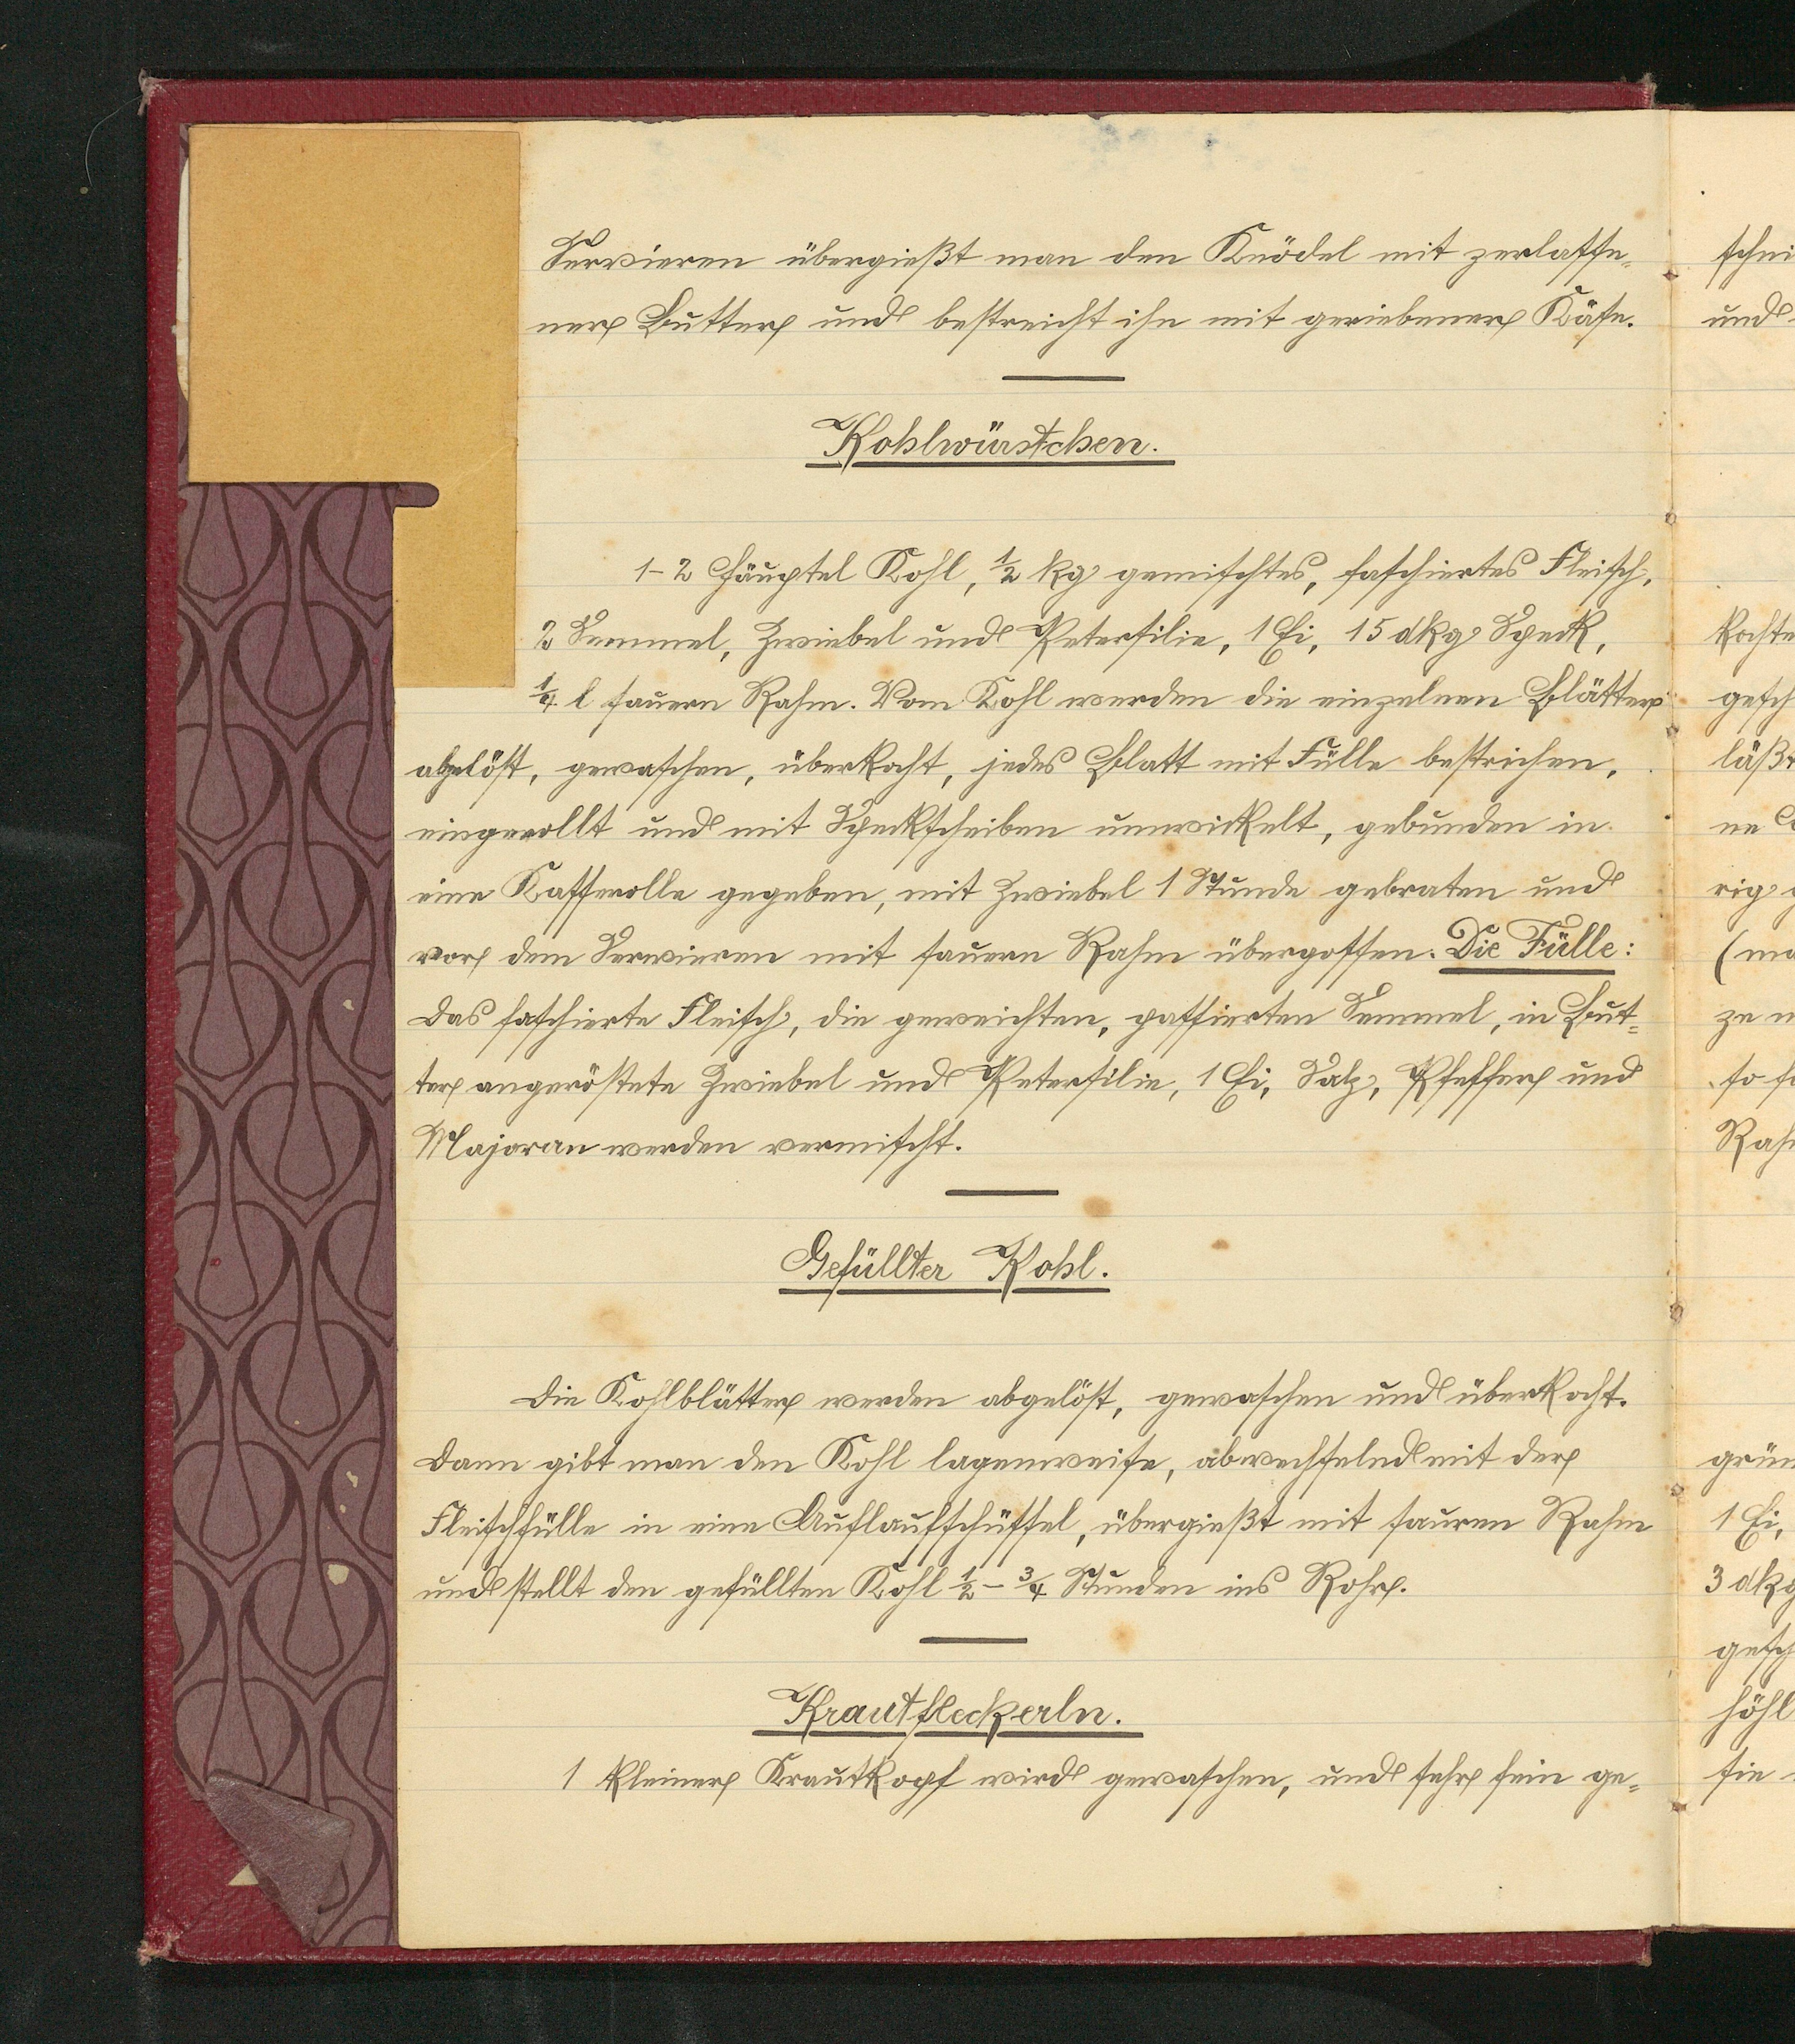 Servieren übergießt man den Knödel mit zerlasse-
ner Butter und bestreicht ihn mit geriebener Käse.
Kohlwürstchen.
1-2 Häuptel Kohl, ½ kg gemischtes, faschiertes Fleisch,
2 Semmel, Zwiebel und Petersilie, 1 Ei, 15 dkg Speck,
¼ l sauern Rahm. Vom Kohl werden die einzelnen Blätter
abgelöst, gewaschen, überkocht, jedes Blatt mit Fülle bestrichen,
eingerollt und mit Speckscheiben umwickelt, gebunden in
eine Kasserolle gegeben, mit Zwiebel 1 Stunde gebraten und
vor dem Servieren mit sauern Rahm übergossen. Die Fülle:
Das faschierte Fleisch, die geweichten, passierten Semmel, in But-
ter angeröstete Zwiebel und Petersilie, 1 Ei, Salz, Pfeffer und
Majoran werden vermischt.
Gefüllter Kohl.
Die Kohlblätter werden abgelöst, gewaschen und überkocht.
Dann gibt man den Kohl lagenweise, abwechselnd mit der
Fleischfülle in eine Auflaufschüssel, übergießt mit sauren Rahm
und stellt den gefüllten Kohl ½ - ¾ Stunden ins Rohr.
Krautfleckerln.
1 kleiner Krautkopf wird gewaschen, und sehr fein ge-
schni
und
kochte
gesch
läßt
ne
rig
(ma
ze
so
Rah
grün
1 Ei,
3 dkg
gesch
höhl
sie